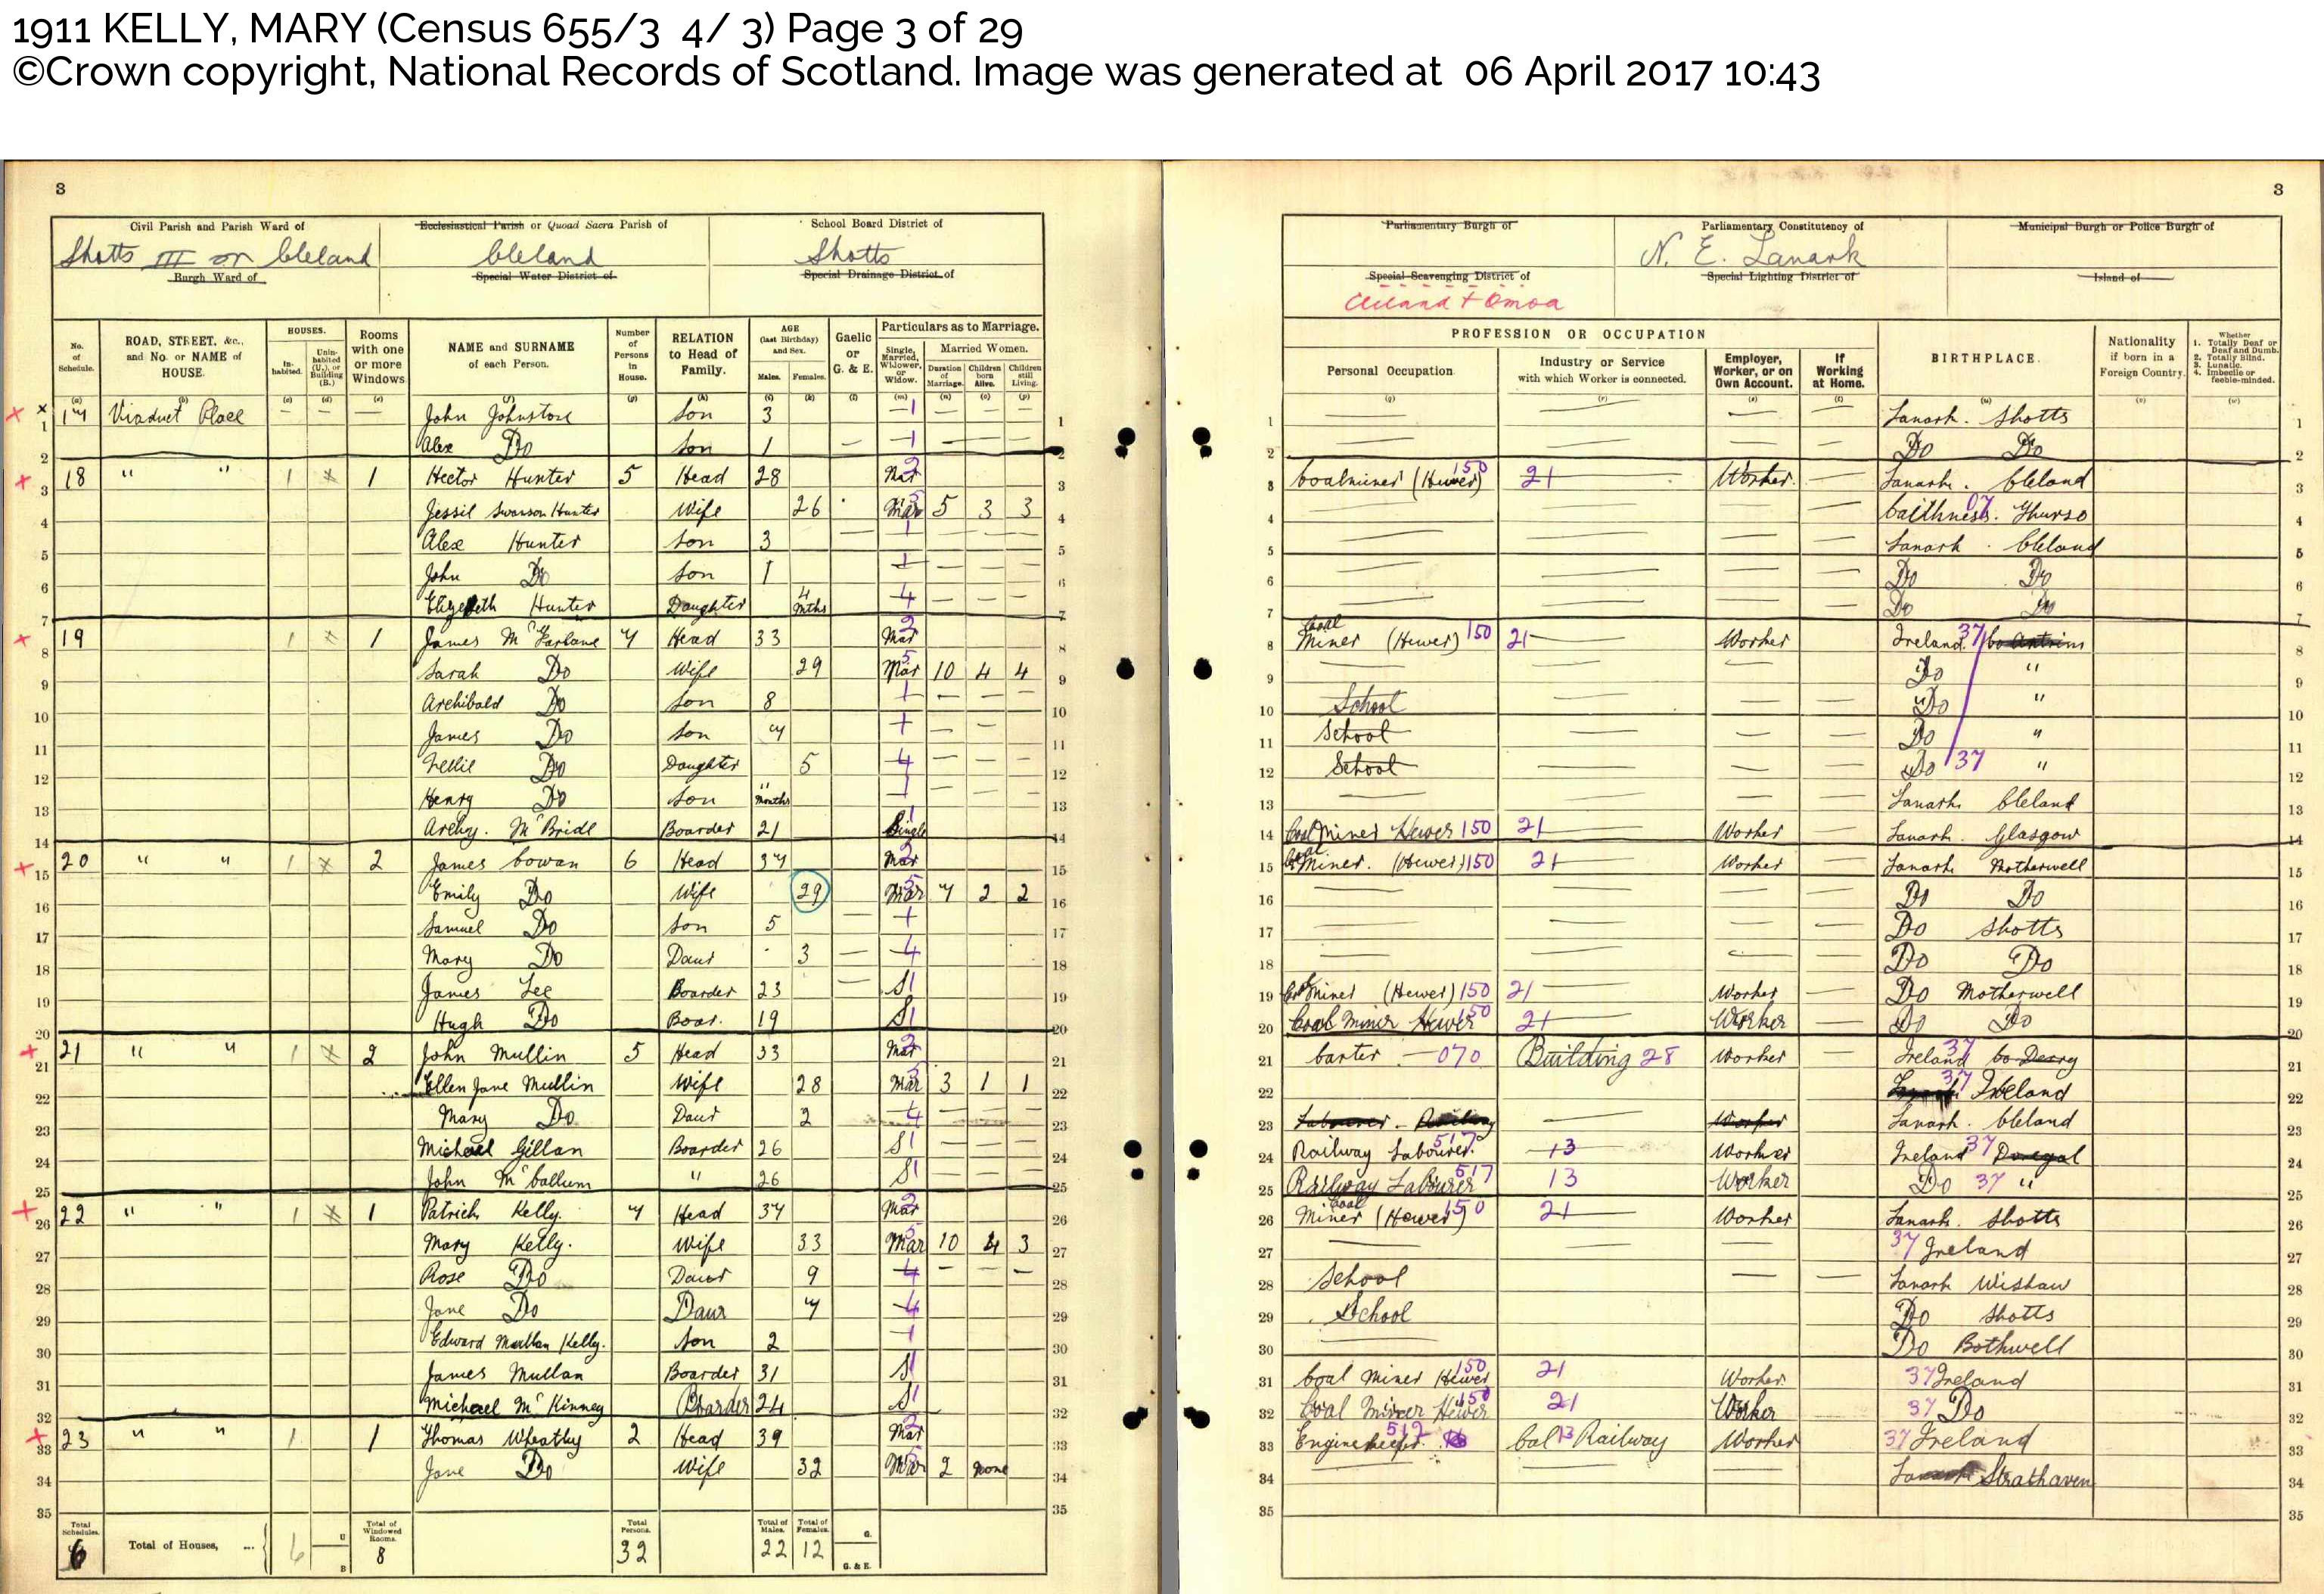 1911 KELLY, MARY (Census 655/3 4/ 3) Page 3 of 29
©Crown copyright, National Records of Scotland. Image was generated at 06 April 2017 10:43
3
3
Civil Parish and Parish Ward of Ecclesiastical Parish or Quoad Sacra Parish of School Board District of
Shotts III or Cleland Cleland Shotts
Burgh Ward of Special Water District of Special Drainage District of
Parliamentary Burgh of Parliamentary Constituency of Municipal Burgh or Police Burgh of
N. E. Lanark
Special Scavenging District of Special Lighting District of Island of
Cleland + Omoa
No. of Schedule. ROAD, STREET, &c., and No. or NAME of HOUSE. HOUSES. Inhabited. Uninhabited (U.), or Building (B.) Rooms with one or more Windows NAME and SURNAME of each Person. Number of Persons in House. RELATION to Head of Family. AGE (last Birthday) and Sex. Males. Females. Gaelic or G. & E. Particulars as to Marriage. Single, Married, Widower, or Widow. Married Women. Duration of Marriage. Children born Alive. Children still Living.
PROFESSION OR OCCUPATION Personal Occupation Industry or Service with which Worker is connected. Employer, Worker, or on Own Account. If Working at Home. BIRTHPLACE. Nationality if born in a Foreign Country. Whether 1. Totally Deaf or Deaf and Dumb. 2. Totally Blind. 3. Lunatic. 4. Imbecile or feeble-minded.
1 17 Viaduct Place John Johnstone Son 3 1 Lanark. Shotts
2 Alex Do Son 1 1 Do Do
3 18 " " 1 x 1 Hector Hunter 5 Head 28 Mar 2 Coalminer (Hewer) 150 21 Worker Lanark. Cleland
4 Jessie Swanson Hunter Wife 26 Mar 5 3 3 Caithness. Thurso 07
5 Alex Hunter Son 3 1 Lanark. Cleland
6 John Do Son 1 1 Do Do
7 Elizabeth Hunter Daughter 4 Mths 4 Do Do
8 19 1 x 1 James McFarlane 7 Head 33 Mar 2 Coal Miner (Hewer) 150 21 Worker Ireland 37 Co Antrim
9 Sarah Do Wife 29 Mar 5 10 4 4 Do "
10 Archibald Do Son 8 1 School Do "
11 James Do Son 7 1 School Do "
12 Nellie Do Daughter 5 4 School Do 37 "
13 Henry Do Son 11 Months 1 Lanark Cleland
14 Archy. McBride Boarder 21 Single 1 Coal Miner Hewer 150 21 Worker Lanark. Glasgow
15 20 " " 1 x 2 James Cowan 6 Head 37 Mar 2 Coal Miner. (Hewer) 150 21 Worker Lanark Motherwell
16 Emily Do Wife 29 Mar 5 7 2 2 Do Do
17 Samuel Do Son 5 1 Do Shotts
18 Mary Do Daur 3 4 Do Do
19 James Lee Boarder 23 S 1 Coal Miner (Hewer) 150 21 Worker Do Motherwell
20 Hugh Do Boar. 19 S 1 Coal Miner Hewer 150 21 Worker Do Do
21 21 " " 1 x 2 John Mullin 5 Head 33 Mar 2 Carter 070 Building 28 Worker Ireland 37 Co Derry
22 Ellen Jane Mullin Wife 28 Mar 5 3 1 1 37 Ireland
23 Mary Do Daur 2 4 Labourer Railway Worker Lanark. Cleland
24 Michael Gillan Boarder 26 S 1 Railway Labourer 517 13 Worker Ireland 37 Donegal
25 John McCallum " 26 S 1 Railway Labourer 517 13 Worker Do 37 "
26 22 " " 1 x 1 Patrick Kelly. 7 Head 37 Mar 2 Coal Miner (Hewer) 150 21 Worker Lanark. Shotts
27 Mary Kelly. Wife 33 Mar 5 10 4 3 37 Ireland
28 Rose Do Daur 9 4 School Lanark Wishaw
29 Jane Do Daur 7 4 School Do Shotts
30 Edward Mullan Kelly. Son 2 1 Do Bothwell
31 James Mullan Boarder 31 S 1 Coal Miner Hewer 150 21 Worker 37 Ireland
32 Michael McKinney Boarder 24 S 1 Coal Miner Hewer 150 21 Worker 37 Do
33 23 " " 1 1 Thomas Wheatley 2 Head 39 Mar 2 Enginekeeper 512 Cal 13 Railway Worker 37 Ireland
34 Jane Do Wife 32 Mar 2 None Lanark Strathaven
35
Total Schedules. 6 Total of Houses, ... 6 U B Total of Windowed Rooms. 8 Total Persons. 32 Total of Males. 22 Total of Females. 12 G. G. & E.